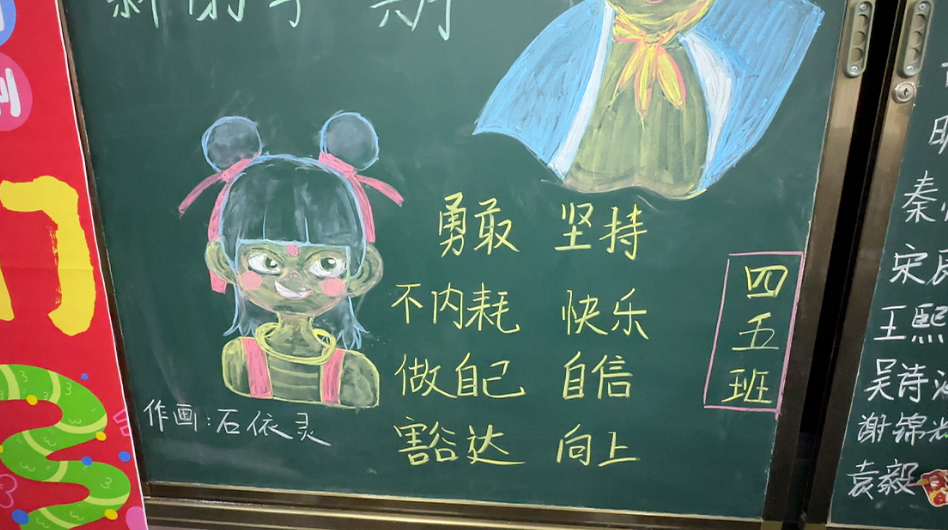 新的学期
勇敢 坚持
不内耗 快乐
做自己 自信
豁达 向上
四五班
作画:石依灵
秦
宋
王熙
吴诗
谢锦
袁毅